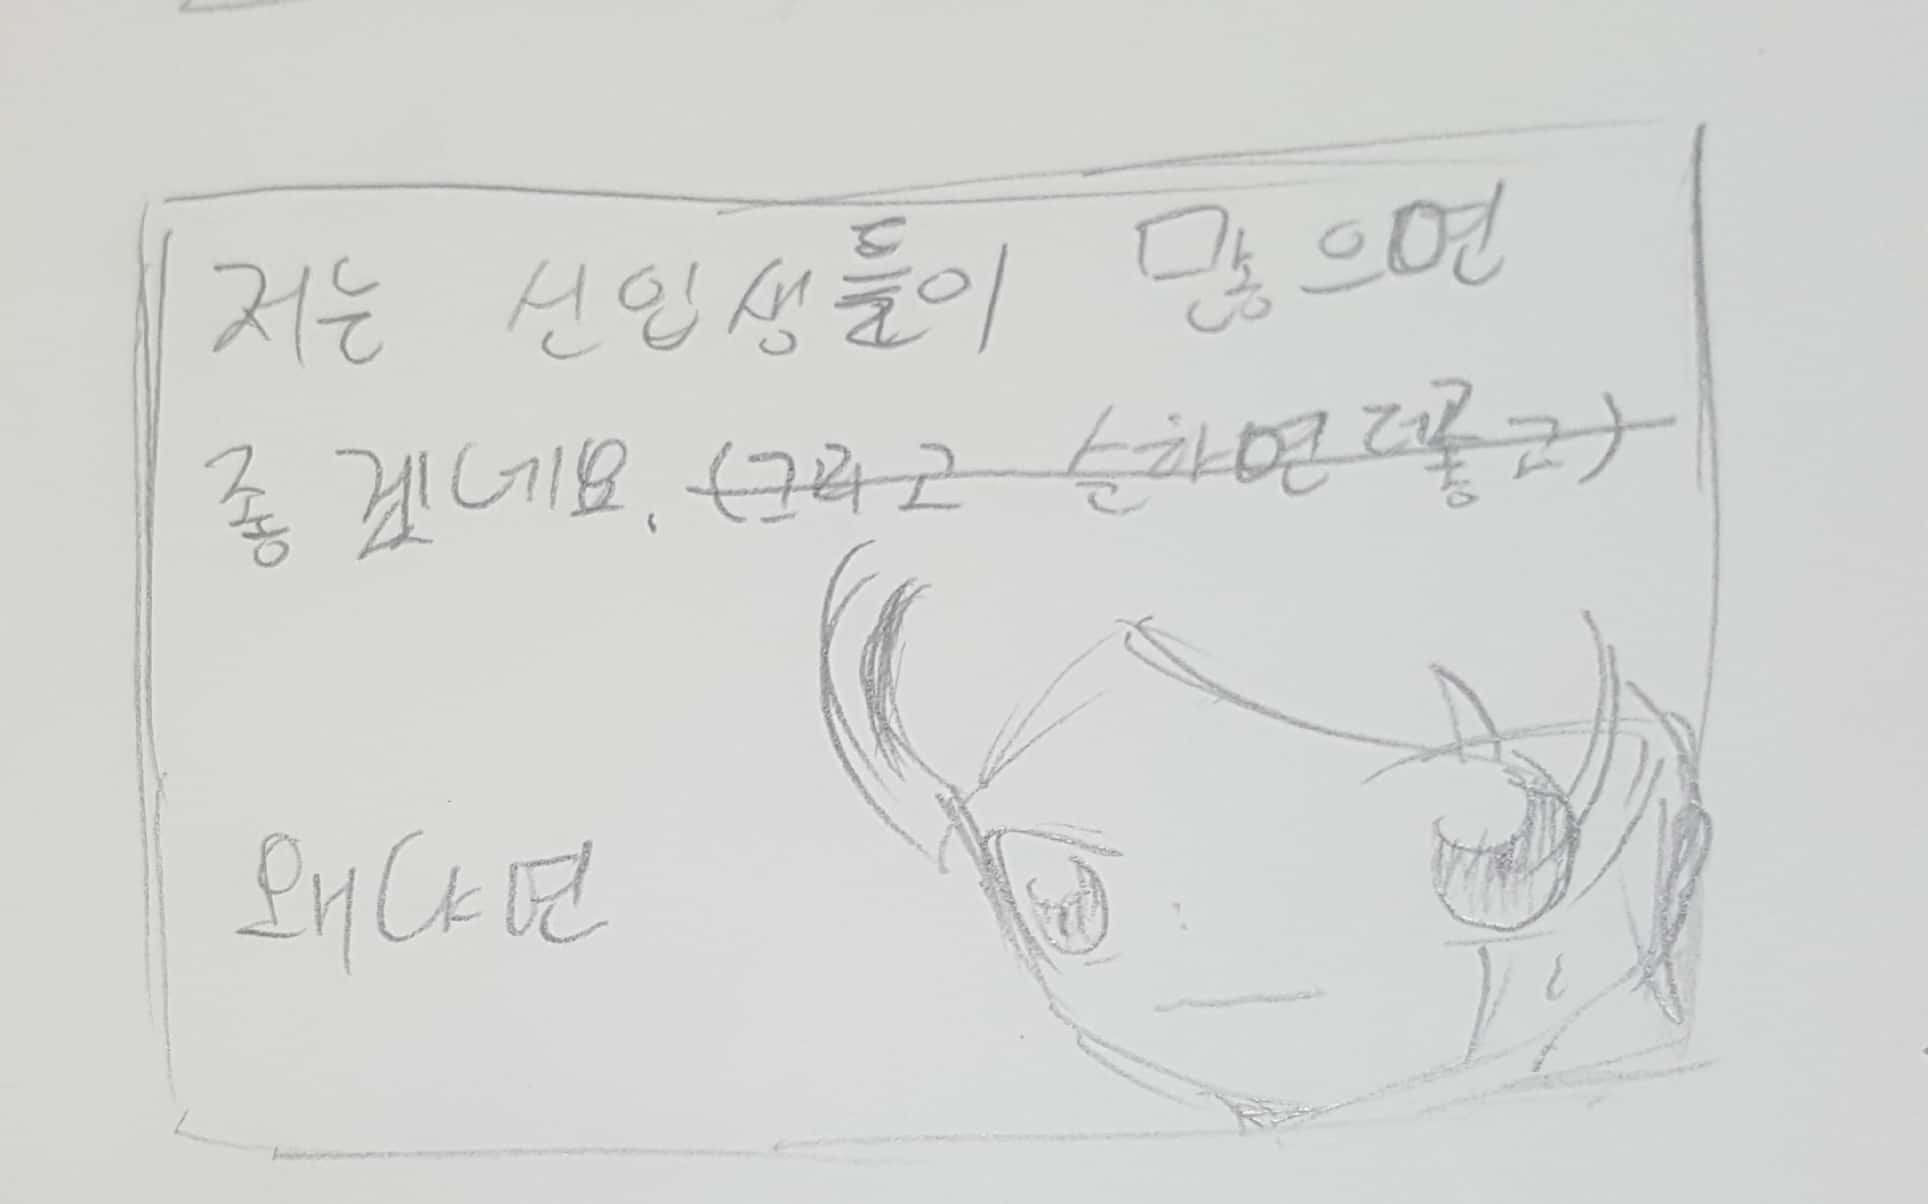 저는 신입생들이 많으면
좋겠네요. (그리고 순하면 더 좋고)
왜냐면